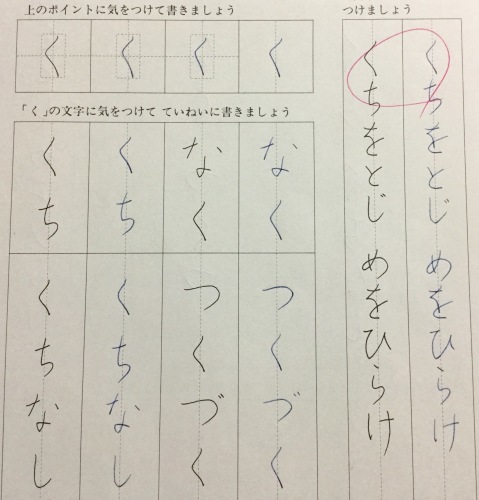 上のポイントに気をつけて書きましょう
く く く く
「く」の文字に気をつけて ていねいに書きましょう
くち
くち
なく
なく
くちなし
くちなし
つくづく
つくづく
つけましょう
くちをとじ めをひらけ
くちをとじ めをひらけ